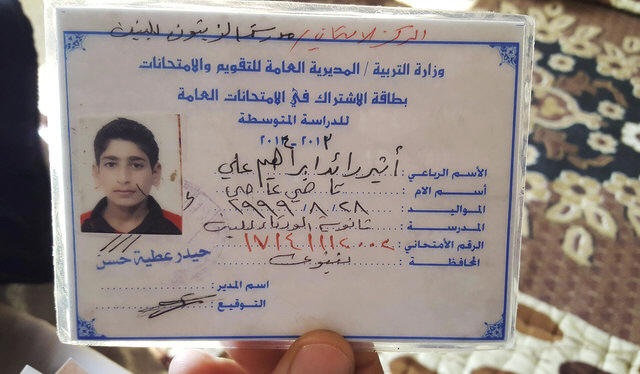 المركز الامتحاني / مدرسة الزيتون للبنين
وزارة التربية / المديرية العامة للتقويم والامتحانات
بطاقة الاشتراك في الامتحانات العامة
للدراسة المتوسطة
٢٠١٣-٢٠١٤
الأسم الرباعي : أثير رائد ابراهيم علي
أسم الام :
المواليد : ٢٨ / ٨ / ١٩٩٩
المدرسة : ثانوية للبنين
الرقم الأمتحاني :
المحافظة : نينوى
حيدر عطية حسن
اسم المدير :
التوقيع :